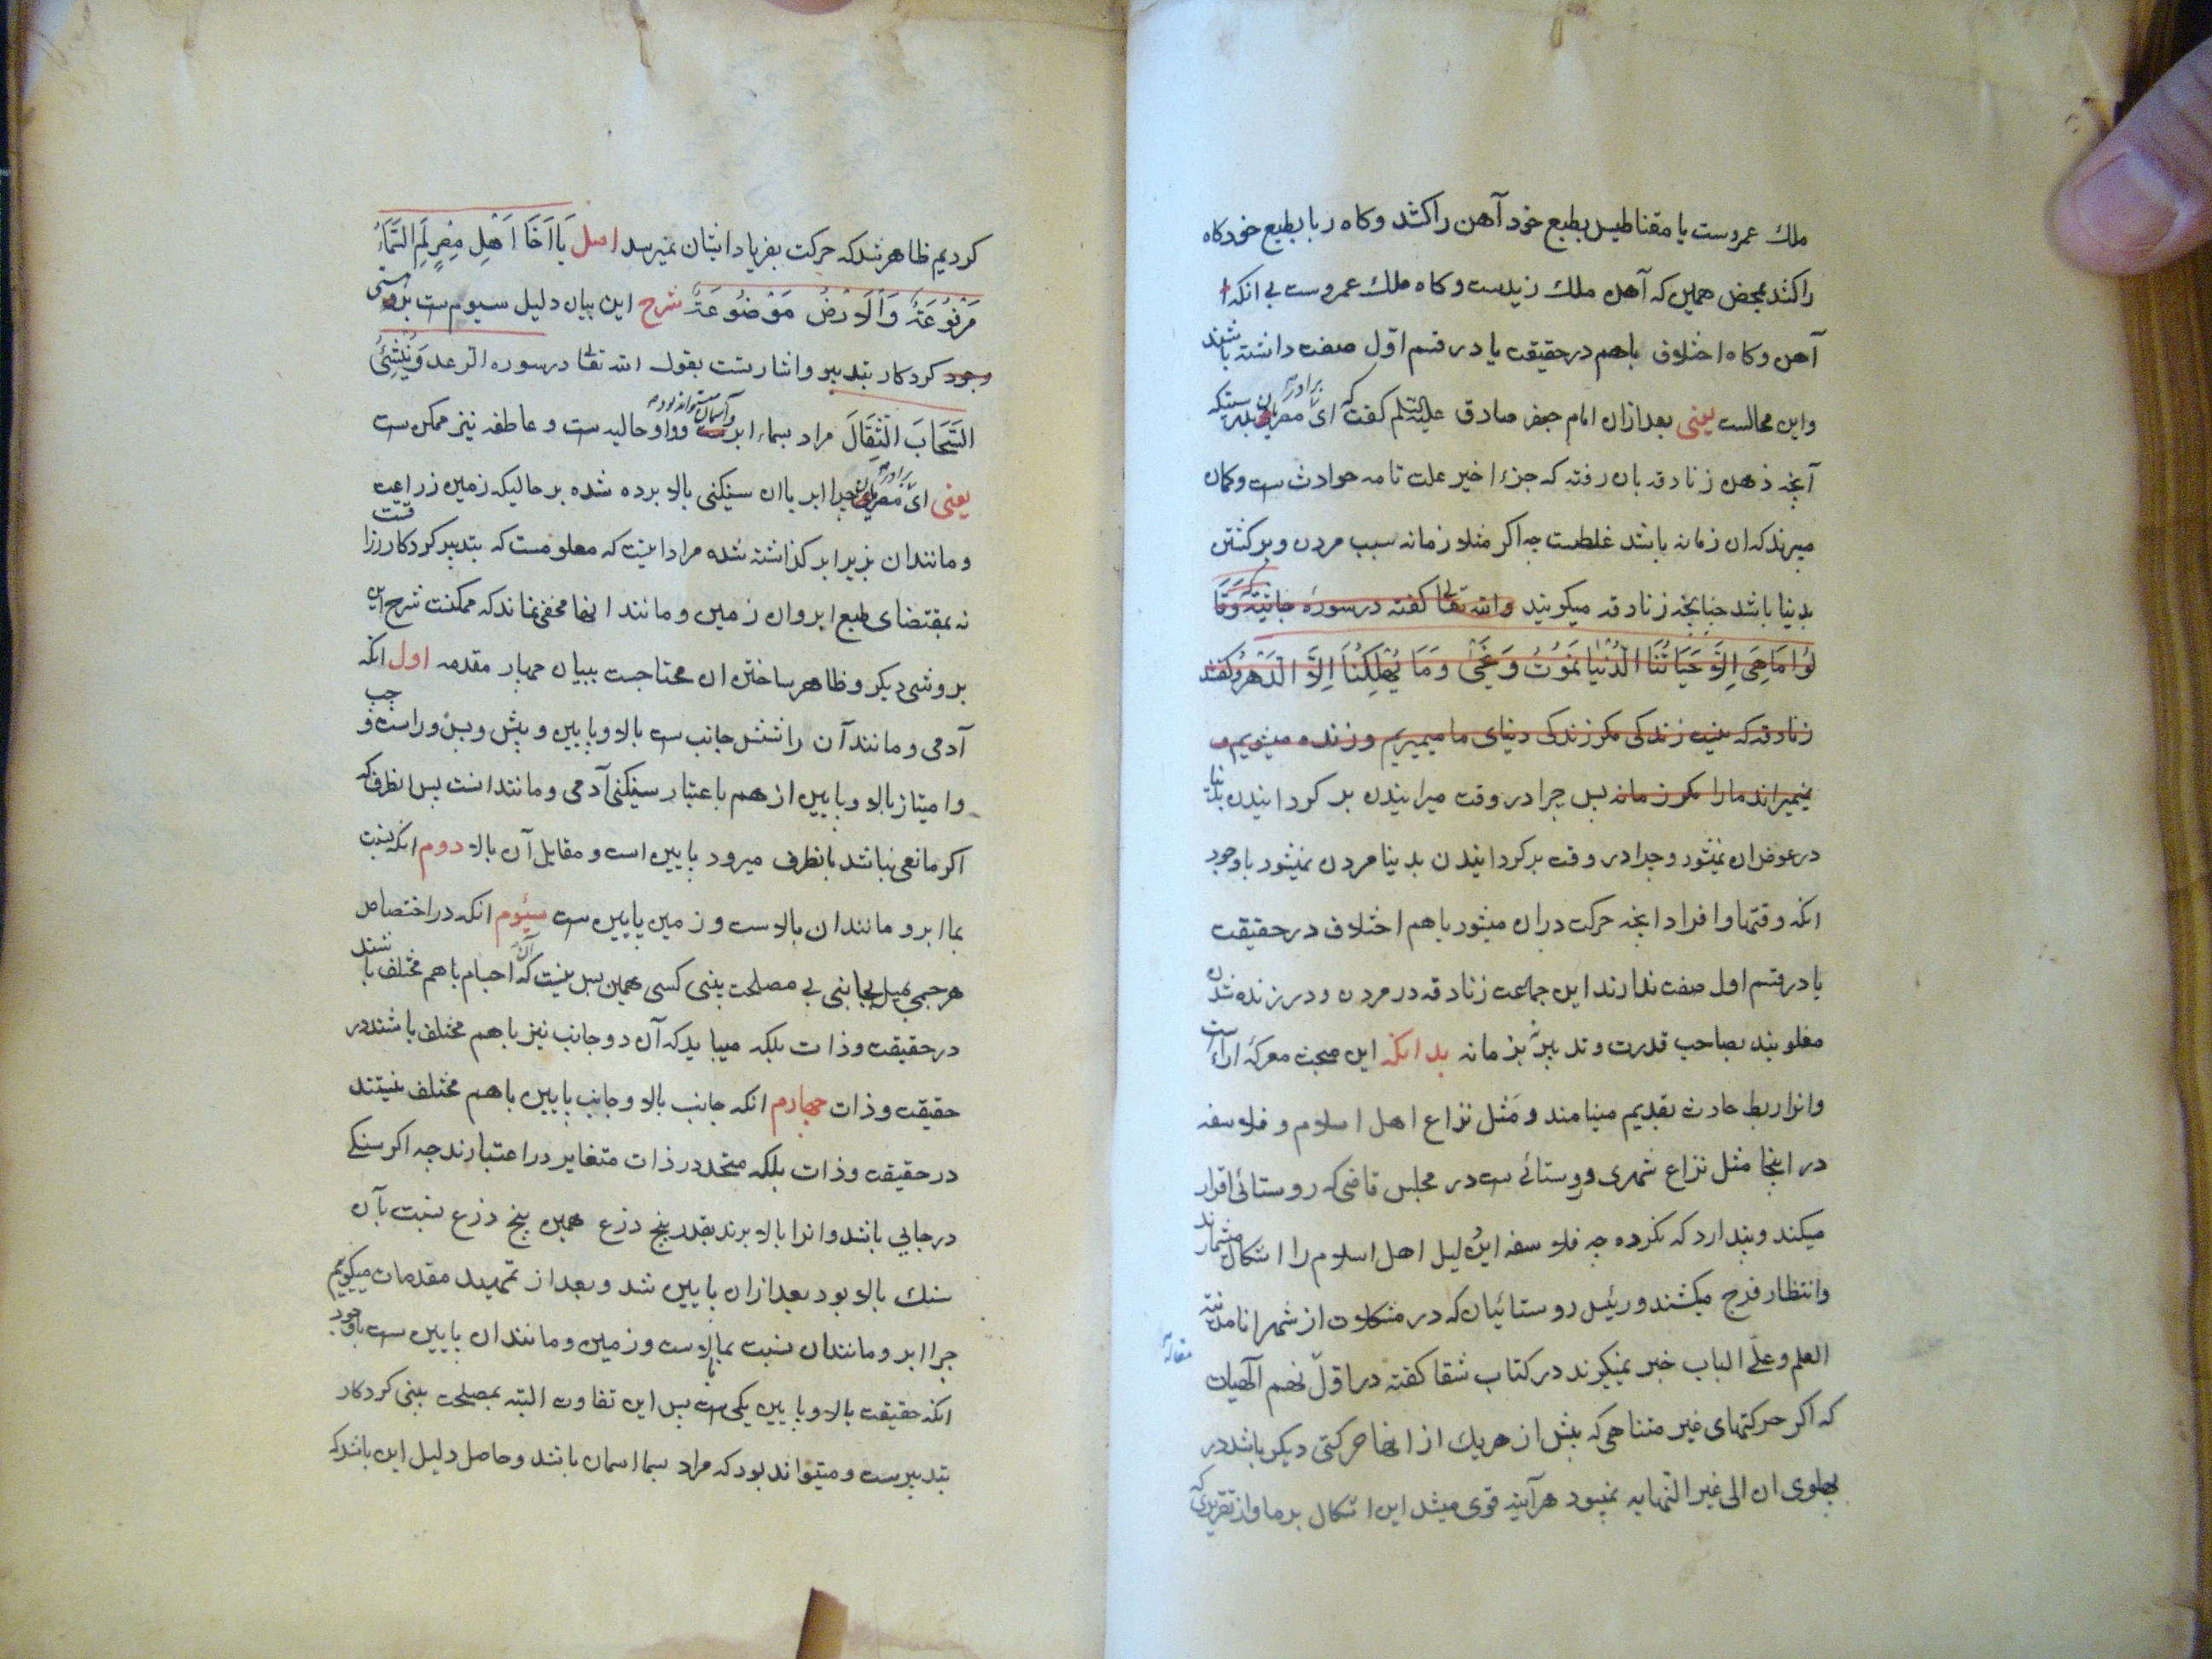 ملك عمروست یا مقناطیس بطبع خود آهن را کشد و کاه ربا بطبع خود کاه
را کشد بمحض همین که آهن ملك زیدست و کاه ملك عمروست بی انکه
آهن و کاه اختلاف باهم در حقیقت یا در قسم اوّل صفت داشته باشند
و این محالست یعنی بعد از ان امام جعفر صادق علیه السلم کفت که ای برادر مصریان بدرستیکه
آنچه ذهن زنادقه بان رفته که جزء اخیر علت تامه حوادث ست و کمان
میبرند که ان زمانه باشد غلطست چه اکر مثلا زمانه سبب مردن و برکشتن
بدنیا باشد چنانچه زنادقه میکویند والله تعالی کفته در سوره جاثیته وَقَا
لُوا مَا هِیَ اِلَّا حَیَاتُنَا الدُّنْیَا نَمُوتُ وَنَحْیٰی وَمَا یُهْلِکُنَا اِلَّا الدَّهْرُ و کفتند
زنادقه که نیست زندکی مکر زندکی دنیای ما میمیریم و زنده میشویم و
نمیمیراند ما را مکر زمانه پس چرا در وقت میرانیدن بر کردانیدن بدنیا
در عوض ان نمیشود و چرا در وقت برکردانیدن بدنیا مردن نمیشود با وجود
انکه وقتها و افراد انچه حرکت دران میشود باهم اختلاف در حقیقت
یا در قسم اول صفت ندارند این جماعت زنادقه در مردن و در زنده شدن
مغلوبند بصاحب قدرت و تدبیر نه بزمانه بدانکه این مبحث معرکهٔ آراءست
و انرا ربط حادث بقدیم مینامند و مَثل نزاع اهل اسلام و فلاسفه
در اینجا مثل نزاع شهری و روستائی ست در مجلس قاضی که روستائی اقرار
میکند و پندارد که نکرده چه فلاسفه این دلیل اهل اسلام را اشکال میشمارند
و انتظار فرج میکشند و رئیس روستائیان که در مشکلات از شهر انا مدینة
العلم و علیّ الباب خبر نمیکیرند در کتاب شفا کفته در اوّل نهم الٓهیات
مقاله
که اکر حرکتهای غیر متناهی که پیش از هریك از انها حرکتی دیکر باشد در
پهلوی ان الی غیر النهایه نمیبود هرآینه قوی میشد این اشکال بر ما و از تقریری که
کردیم ظاهر شد که حرکت بفریاد ایشان نمیرسد اصل یَا اَخَا اَهْلِ مِصْرٍ لِمَ السَّمَاءُ
مَرْفُوعَةٌ وَالْاَرْضُ مَوْضُوعَةٌ شرح این بیان دلیل سیوم ست بر هستی
وجود کردکار بتدبیر و اشارتست بقول الله تعالی در سوره الرعد وَیُنْشِئُ
السَّحَابَ الثِّقَالَ مراد بسماء ابرست و آسمان میتواند بود و واو حالیه ست و عاطفه نیز ممکن ست
یعنی ای برادر مصریان چرا ابر باان سنکینی بالا برده شده بر حالیکه زمین زراعت
و مانند ان بزیر ابر کذاشته شده مراد اینست که معلومست که بتدبیر کردکار رزاقست
نه بمقتضای طبع ابر و ان زمین و مانند انها مخفی نماند که ممکنست شرح این
بروشی دیکر و ظاهر ساختن ان محتاجست ببیان چهار مقدمه اول انکه
آدمی و مانند آن را شش جانب ست بالا و پایین و پیش و پس و راست و چپ
و امتیاز بالا و پایین از هم باعتبار سنکینی آدمی و مانند انست پس انطرف که
اکر مانعی نباشد بانطرف میرود پایین است و مقابل آن بالا دوم انکه نسبت
بما ابر و مانند ان بالاست و زمین پایین ست سیُوم انکه در اختصاص
هر جسمی بمیل بجانبی بی مصلحت بینی کسی همین بس نیست که آن اجسام باهم مختلف باشند
در حقیقت و ذات بلکه میباید که آن دو جانب نیز باهم مختلف باشند در
حقیقت و ذات چهارم انکه جانب بالا و جانب پایین باهم مختلف نیستند
در حقیقت و ذات بلکه متحد در ذات متغایر در اعتبارند چه اکر سنکی
در جایی باشد و انرا بالا برند بقدر پنج ذرع همین پنج ذرع نسبت بآن
سنك بالا بود بعد از ان پایین شد و بعد از تمهید مقدمات میکوییم
چرا ابر و مانند ان نسبت بما بالاست و زمین و مانند ان پایین ست باوجود
انکه حقیقت بالا و پایین یکی ست پس این تفاوت البته بمصلحت بینی کردکار
بتدبیرست و میتواند بود که مراد بسما اسمان باشد و حاصل دلیل این باشد که